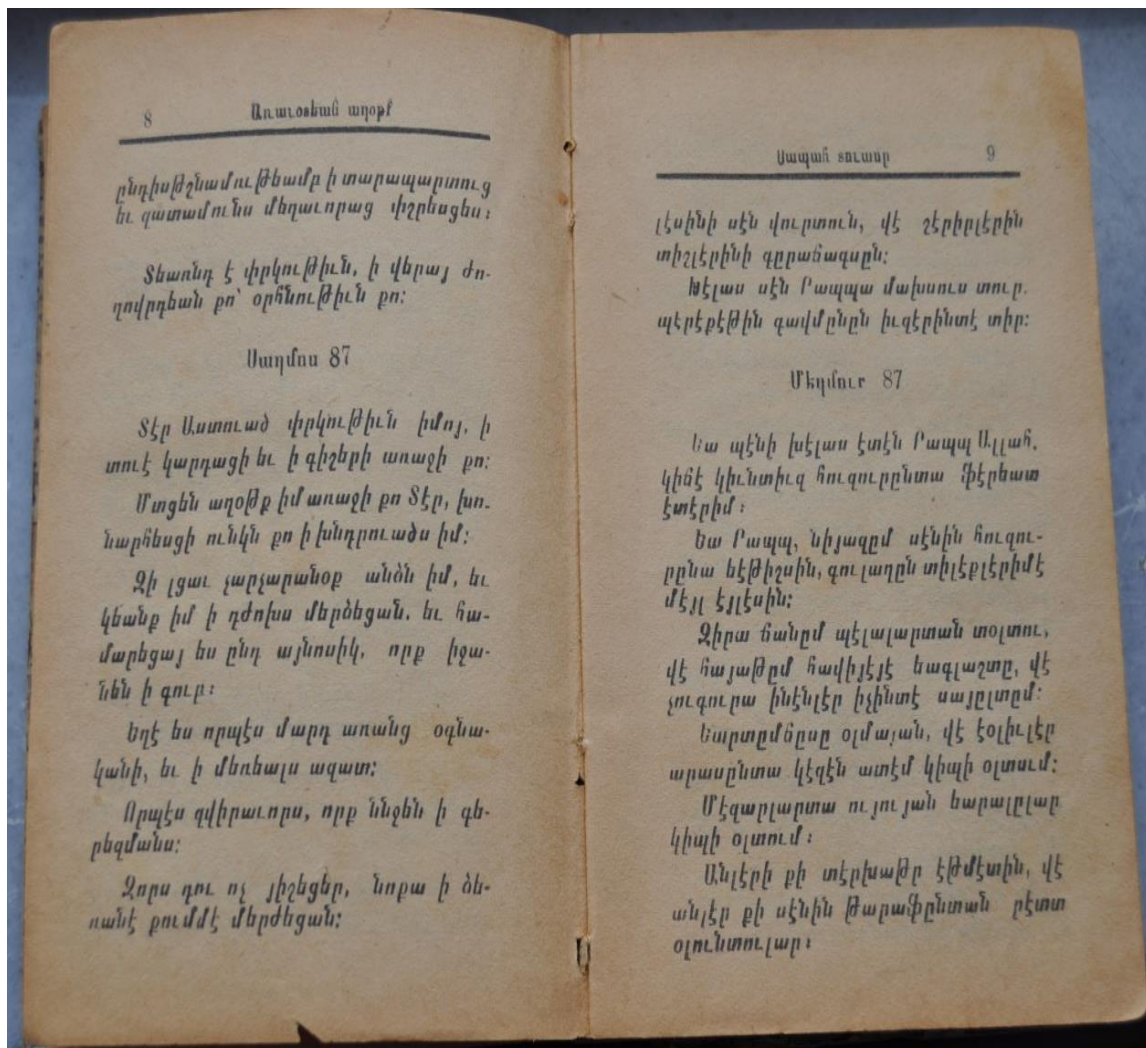 8 Առաւօտեան աղօթք
ընդիսթշնամութեամբ ի տարապարտուց
եւ զատամունս մեղաւորաց փշրեսցես։
Տեառնդ է փրկութիւն, ի վերայ ժո-
ղովրդեան քո՝ օրհնութիւն քո։
Սաղմոս 87
Տէր Աստուած փրկութիւն իմոյ, ի
տուէ կարդացի եւ ի գիշերի առաջի քո։
Մտցեն աղօթք իմ առաջի քո Տէր, խո-
նարհեսցի ունկն քո ի խնդրուածս իմ։
Զի լցաւ չարչարանօք անձն իմ, եւ
կեանք իմ ի դժոխս մերձեցան. եւ հա-
մարեցայ ես ընդ այնոսիկ, որք իջա-
նեն ի գուբ։
Եղէ ես որպէս մարդ առանց օգնա-
կանի, եւ ի մեռեալս ազատ։
Որպէս զվիրաւորս, որք ննջեն ի գե-
րեզմանս։
Զորս դու ոչ յիշեցեր, նոքա ի ձե-
ռանէ քումմէ մերժեցան։
Սապահ տուասը 9
լէսինի սէն վուրտուն, վէ շէրիրլէրին
տիշլէրինի գըրաճագսըն։
Խէլաս սէն Րապպա մախսուս տուր.
պէրէքէթին գավմընըն իւզէրինտէ տիր։
Մեղմուր 87
Եա պէնի խէլաս էտէն Րապպ Ալլահ,
կիճէ կիւնտիւզ հուզուրընտա ֆէրեատ
էտէրիմ։
Եա Րապպ, նիյազըմ սէնին հուզու-
րընա եէթիշսին, գուլաղըն տիլէքլէրիմէ
մէյլ էյլէսին։
Զիրա ճանըմ պէլալարտան տօլտու,
վէ հայաթըմ հավիյէյէ եագլաշտը, վէ
չուգուրա ինէնլէր իչինտէ սայըլտըմ։
Եարտըմճըսը օլմայան, վէ էօլիւլէր
արասընտա կէզէն ատէմ կիպի օլտում։
Մէզարլարտա ույույան եարալըլար
կիպի օլտում։
Անլէրի քի տէրխաթըր էթմէտին, վէ
անլէր քի սէնին թարաֆընտան րէտտ
օլունտուլար։